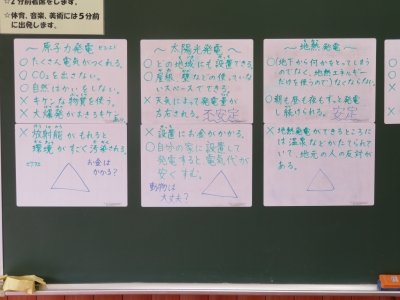 ☆2分前着席をします。
☆体育、音楽、美術には5分前
に出発します。
～原子力発電
○たくさん電気がつくれる。
○CO₂を出さない。
○自然はかいをしない。
×キケンな物質を使う。
×大爆発がおきるキケン
×放射能がもれると
環境がすごく汚染される。
お金は
かかる?
～太陽光発電～
○どの地域にも設置できる。
○屋根、壁などの使っていな
いスペースでできる。
×天気によって発電量が
左右される。不安定
×設置にお金がかかる。
○自分の家に設置して
発電すると電気代が
安くすむ。
動物は
大丈夫?
～地熱発電～
○(地下から何かをとってしまう
のでなく、地熱エネルギー
だけを使うので)なくならない。
○朝も昼も夜もずっと発電
し続けられる。安定
×地熱発電ができるところに
は温泉などがたてられて
いて、地元の人の反対が
ある。